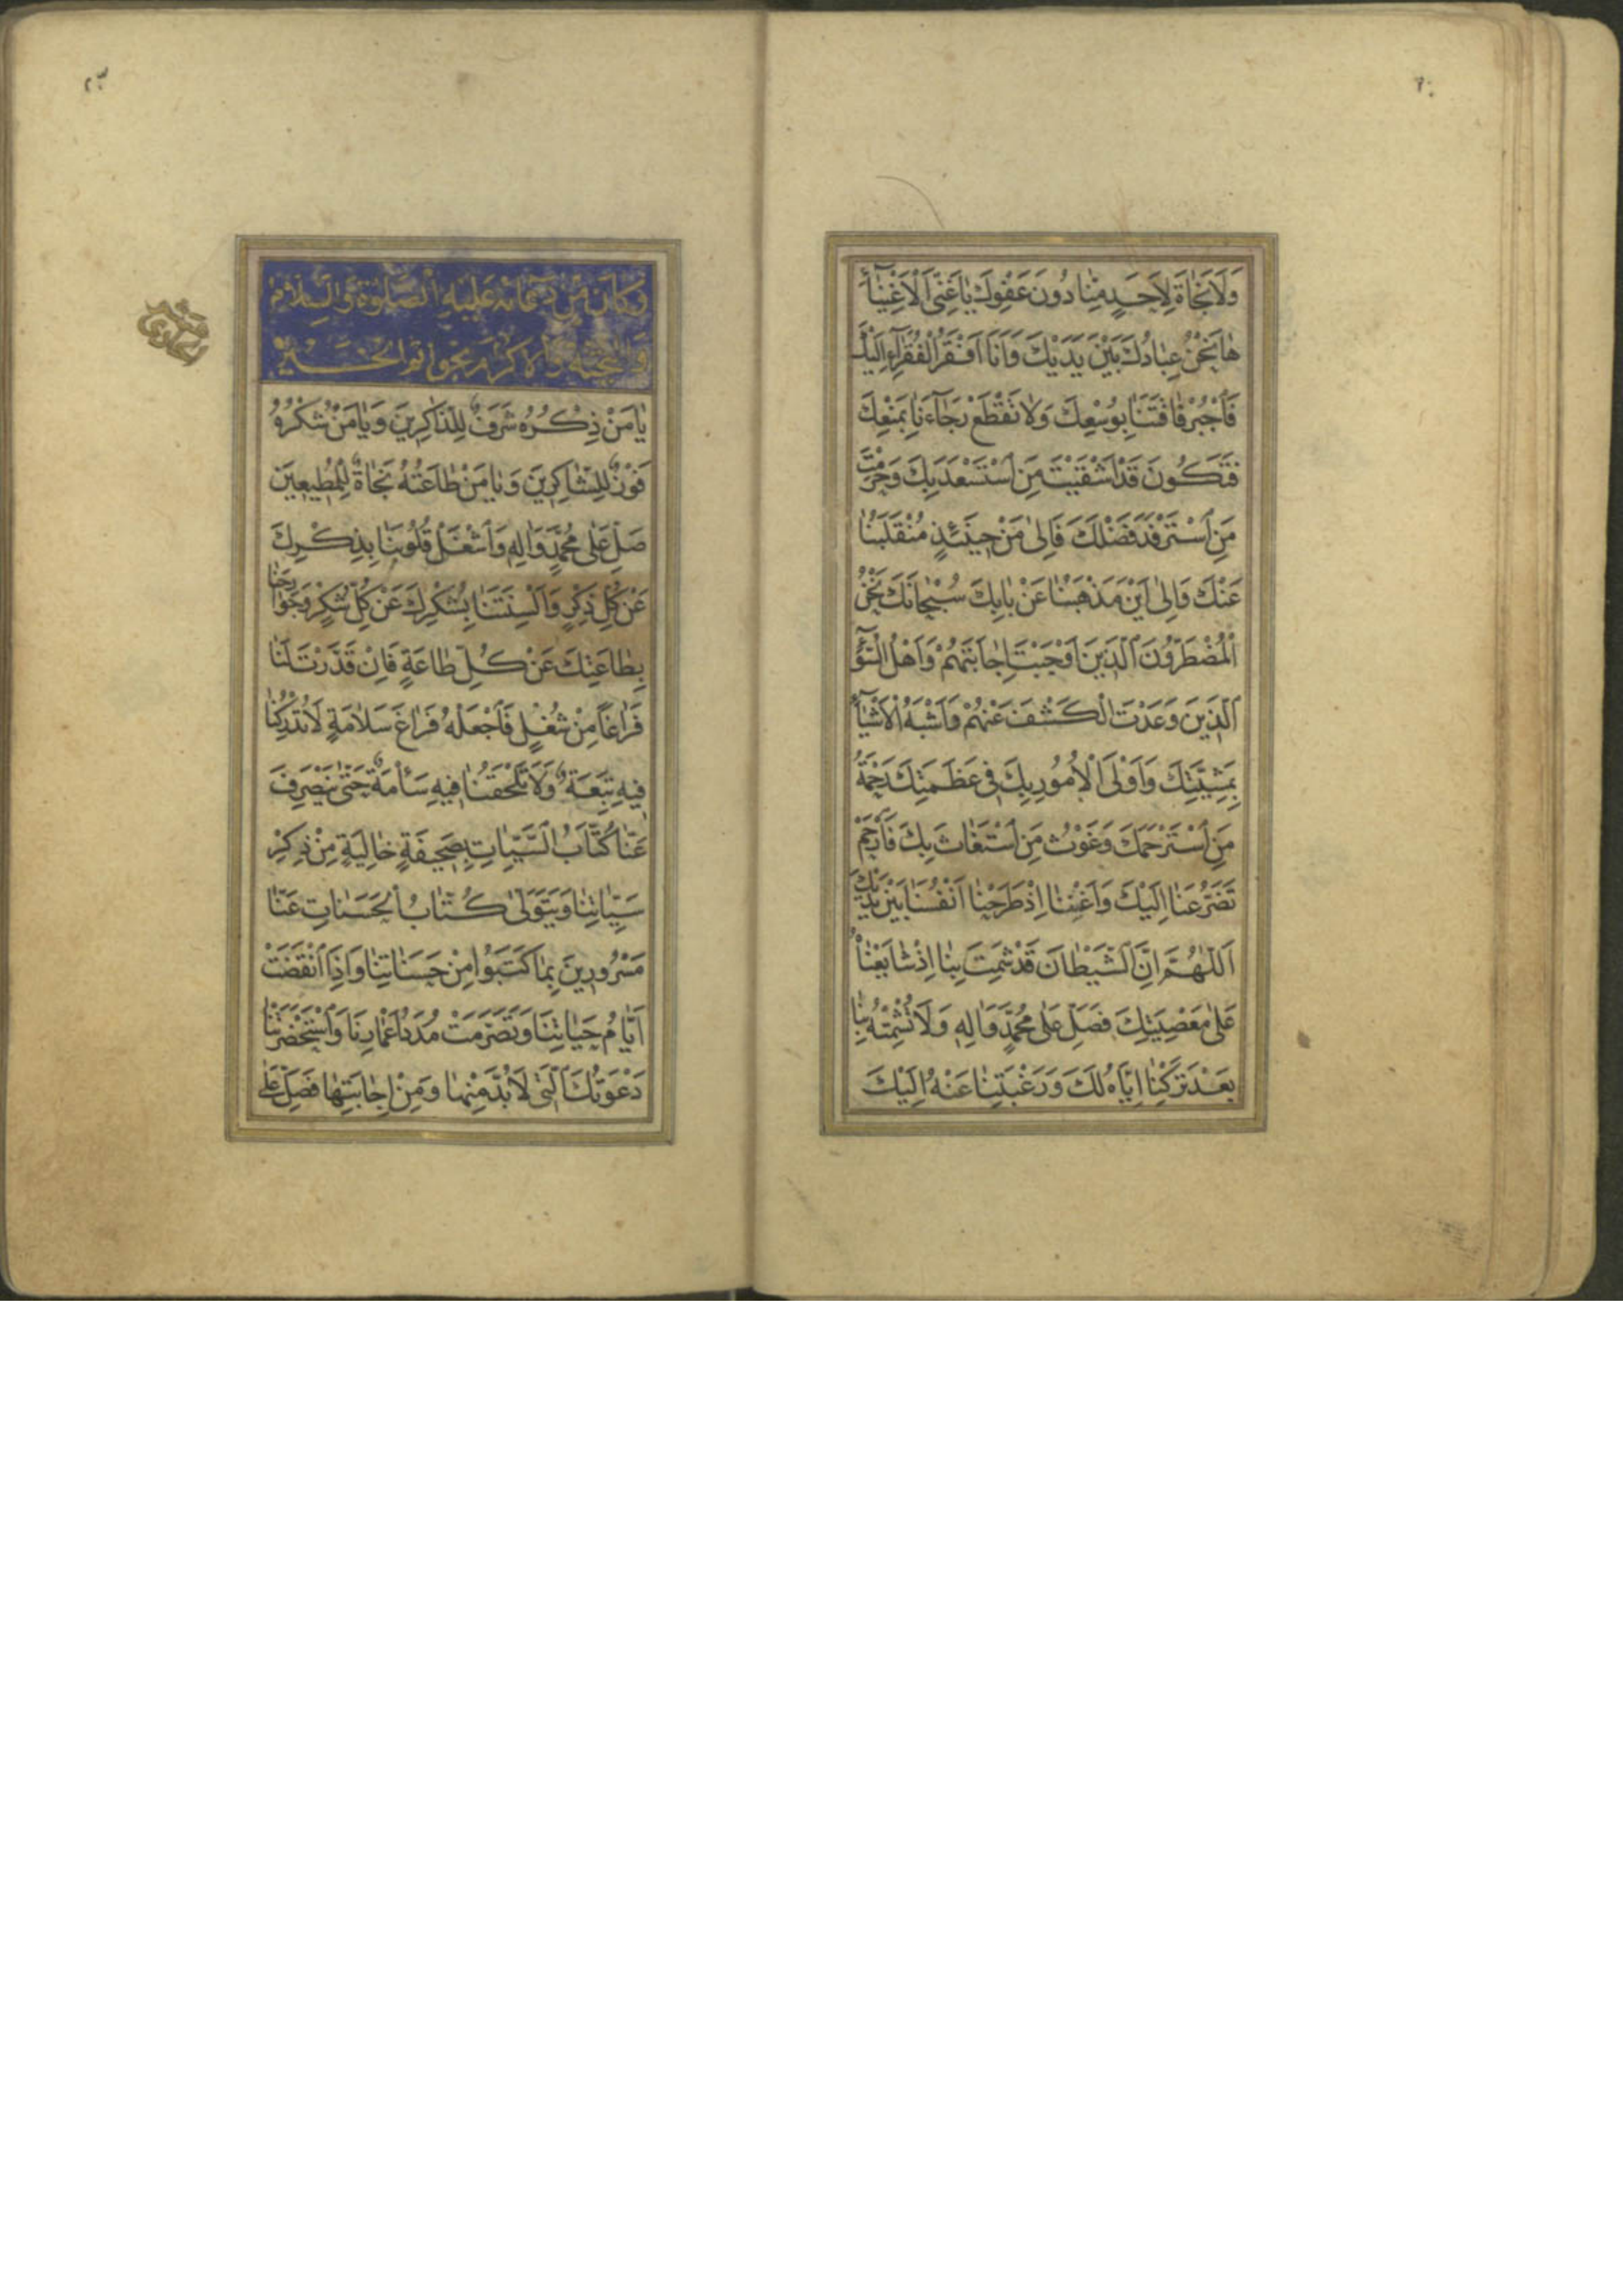 وَلَا نَجَاةَ لِأَحَدٍ مِنَّا دُونَ عَفْوِكَ يَا غَنِيَّ الْأَغْنِيَاءِ
هَا نَحْنُ عِبَادُكَ بَيْنَ يَدَيْكَ وَأَنَا أَفْقَرُ الْفُقَرَاءِ إِلَيْكَ
فَاجْبُرْ فَاقَتَنَا بِوُسْعِكَ وَلَا تَقْطَعْ رَجَاءَنَا بِمَنْعِكَ
فَتَكُونَ قَدْ أَشْقَيْتَ مَنِ اسْتَسْعَدَ بِكَ وَحَرَمْتَ
مَنِ اسْتَرْفَدَ فَضْلَكَ فَإِلَى مَنْ حِينَئِذٍ مُنْقَلَبُنَا
عَنْكَ وَإِلَى أَيْنَ مَذْهَبُنَا عَنْ بَابِكَ سُبْحَانَكَ نَحْنُ
الْمُضْطَرُّونَ الَّذِينَ أَوْجَبْتَ إِجَابَتَهُمْ وَأَهْلُ السُّوءِ
الَّذِينَ وَعَدْتَ الْكَشْفَ عَنْهُمْ وَأَشْبَهُ الْأَشْيَاءِ
بِمَشِيَّتِكَ وَأَوْلَى الْأُمُورِ بِكَ فِي عَظَمَتِكَ رَحْمَةُ
مَنِ اسْتَرْحَمَكَ وَغَوْثُ مَنِ اسْتَغَاثَ بِكَ فَارْحَمْ
تَضَرُّعَنَا إِلَيْكَ وَأَغْنِنَا إِذْ طَرَحْنَا أَنْفُسَنَا بَيْنَ يَدَيْكَ
اَللّٰهُمَّ إِنَّ الشَّيْطَانَ قَدْ شَمِتَ بِنَا إِذْ شَايَعْنَاهُ
عَلَى مَعْصِيَتِكَ فَصَلِّ عَلَى مُحَمَّدٍ وَآلِهِ وَلَا تُشْمِتْهُ بِنَا
بَعْدَ تَرْكِنَا إِيَّاهُ لَكَ وَرَغْبَتِنَا عَنْهُ إِلَيْكَ
وَكَانَ مِنْ دُعَائِهِ عَلَيْهِ الصَّلَوةُ وَالسَّلَامُ
وَالتَّحِيَّةُ وَالْإِكْرَامُ بِخَوَاتِمِ الْخَيْرِ
يَا مَنْ ذِكْرُهُ شَرَفٌ لِلذَّاكِرِينَ وَيَا مَنْ شُكْرُهُ
فَوْزٌ لِلشَّاكِرِينَ وَيَا مَنْ طَاعَتُهُ نَجَاةٌ لِلْمُطِيعِينَ
صَلِّ عَلَى مُحَمَّدٍ وَآلِهِ وَاشْغَلْ قُلُوبَنَا بِذِكْرِكَ
عَنْ كُلِّ ذِكْرٍ وَأَلْسِنَتَنَا بِشُكْرِكَ عَنْ كُلِّ شُكْرٍ وَجَوَارِحَنَا
بِطَاعَتِكَ عَنْ كُلِّ طَاعَةٍ فَإِنْ قَدَّرْتَ لَنَا
فَرَاغًا مِنْ شُغْلٍ فَاجْعَلْهُ فَرَاغَ سَلَامَةٍ لَا تُدْرِكُنَا
فِيهِ تَبِعَةٌ وَلَا تَلْحَقُنَا فِيهِ سَأْمَةٌ حَتَّى يَنْصَرِفَ
عَنَّا كُتَّابُ السَّيِّئَاتِ بِصَحِيفَةٍ خَالِيَةٍ مِنْ ذِكْرِ
سَيِّئَاتِنَا وَيَتَوَلَّى كُتَّابُ الْحَسَنَاتِ عَنَّا
مَسْرُورِينَ بِمَا كَتَبُوا مِنْ حَسَنَاتِنَا وَإِذَا انْقَضَتْ
أَيَّامُ حَيَاتِنَا وَتَصَرَّمَتْ مُدَدُ أَعْمَارِنَا وَاسْتَحْضَرَتْنَا
دَعْوَتُكَ الَّتِي لَا بُدَّ مِنْهَا وَمِنْ إِجَابَتِهَا فَصَلِّ عَلَى